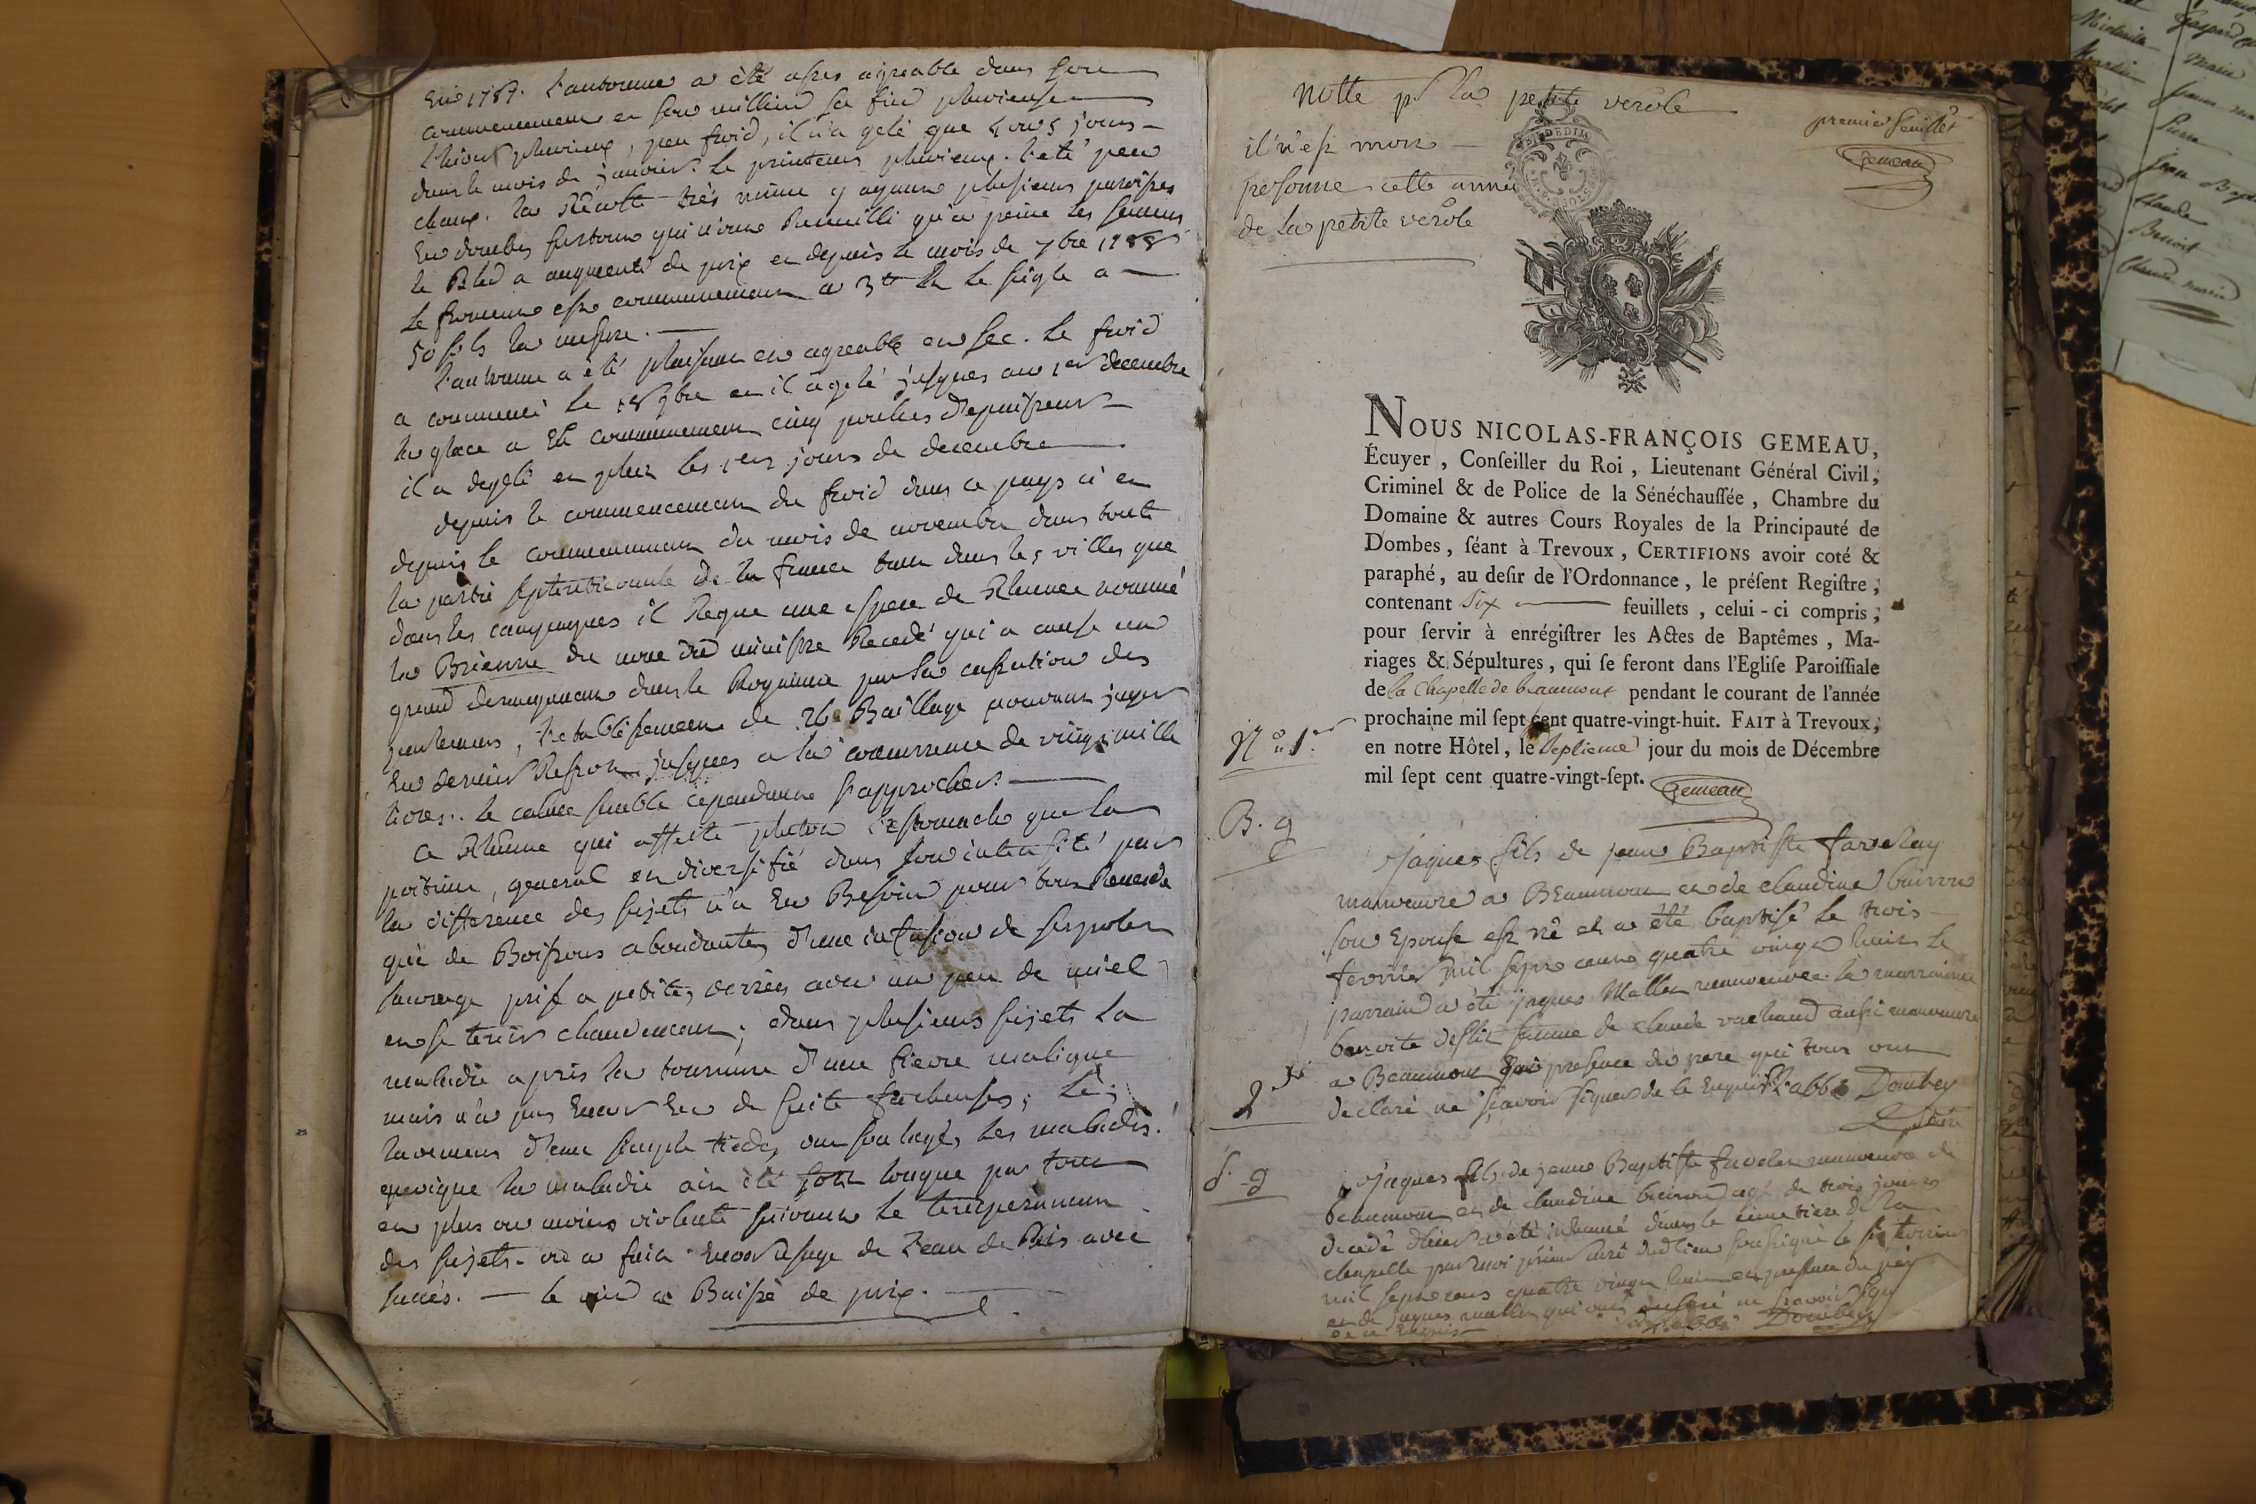 En 1787. L'automne a été assés agreable dans son
commencement et son millieu sa fin pluvieuse
l'hiver pluvieux, peu froid, il n'a gelé que 4 ou 5 jours
dans le mois de janvier. Le printems pluvieux. l'eté peu
chaux. la Récolte très mince y ayant plusieurs paroisses
En dombes surtout qui n'ont Recueilli qu'a peine les semens
le Bled a augmenté de prix et depuis le mois de 7bre 1788
le froment est communement a 3tt le seigle a
50 sols la mesure.
L'automne a été plaisant et agreable et sec. Le froid
a commencé le 9bre et il a gelé jusques au 1er decembre
la glace a eu communement cinq pouces d'epaisseur
il a degelé et pleu les 1ers jours de decembre
depuis le commencement du froid dans ce pays ci et
depuis le commencement du mois de novembre dans toute
la partie septentrionale de la france tant dans les villes que
dans les campagnes il Regne une espece de Rhume nommé
la Brienne du nom du ministre qui a cause un
grand derangement dans le Royaume par la cassation des
parlemens, l'etablissement de Baillage pouvant juger
En dernier Ressort jusques a la concurrence de vingt mille
livres. le calme semble cependant s'approcher.
Ce Rhume qui affecte plutot l'estomach que la
poitrine, general et diversifié dans son intensité par
la difference des sujets n'a Eu Besoin pour tout Remede
que de Boissons abondantes d'une infusion de serpolet
sauvage pris a petites verrées avec un peu de miel
et se tenir chaudement; dans plusieurs sujets la
maladie a pris la tournure d'une fievre maligne
mais n'a pas Encor Eu de suite facheuses; les
lavemens d'eau simple tiede, ont soulagé les malades.
quoique la maladie ait été fort longue par tout
et plus ou moins violente suivant le temperament
des sujets. on a fait Encor usage de l'eau de Ris avec
succés. — le vin a Baissé de prix.
Notte pr la petite verole
il n'est mort
personne cette année
de la petite verole
premier feuillet
Gemeau
NOUS NICOLAS-FRANÇOIS GEMEAU,
Écuyer, Conseiller du Roi, Lieutenant Général Civil,
Criminel & de Police de la Sénéchaussée, Chambre du
Domaine & autres Cours Royales de la Principauté de
Dombes, séant à Trevoux, CERTIFIONS avoir coté &
paraphé, au desir de l'Ordonnance, le présent Registre,
contenant Six feuillets, celui-ci compris,
pour servir à enrégistrer les Actes de Baptêmes, Ma-
riages & Sépultures, qui se feront dans l'Eglise Paroissiale
de la Chapelle de beaumont pendant le courant de l'année
prochaine mil sept cent quatre-vingt-huit. FAIT à Trevoux,
en notre Hôtel, le Septieme jour du mois de Décembre
mil sept cent quatre-vingt-sept.
Gemeau
No 1er
B. g
Jaques fils de jean Baptiste
manouvre a Beaumont et de claudine
son Epouse est né et a été baptisé le trois
fevrier mil sept cent quatre vingt huit le
parrain a été jaques manouvre la marraine
benoite femme de claude aussi manouvre
a Beaumont presence du pere qui tous ont
declaré ne sçavoir signer de ce Enquis L'abbé Dombey
2
S. g
Jaques fils de jean Baptiste manouvre de
beaumont et de claudine agé de trois jours
decedé d'hier a été inhumé dans le cimetiere de la
chapelle par moi curé dud lieu soussigné le
mil sept cens quatre vingt huit en presence du pere
et de jaques qui ont declaré ne sçavoir
de ce Enquis
Dombey